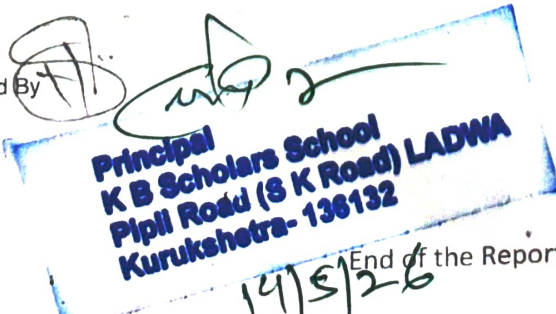 d By
Principal
K B Scholars School
Pipli Road (S K Road) LADWA
Kurukshetra- 136132
End of the Repor
14/5/26